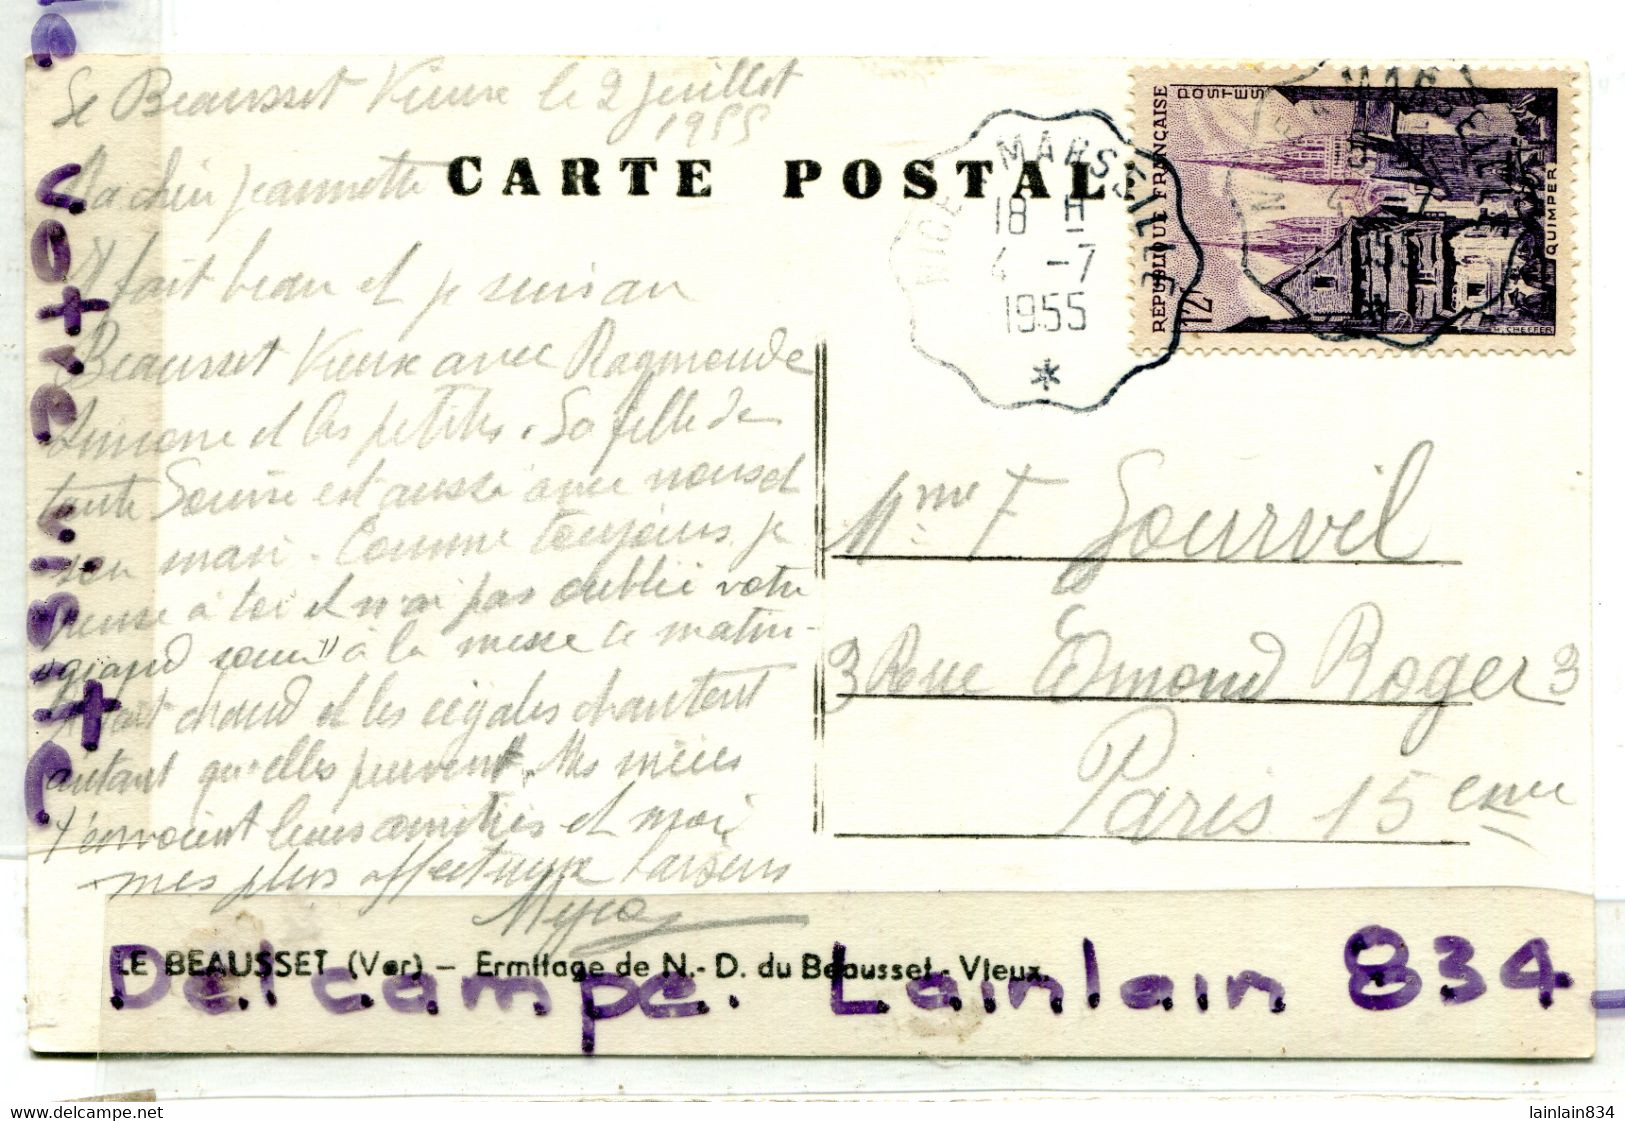 Le Beausset Vieux le 2 juillet
1955
CARTE POSTALE
Ma chère Jeannette
Il fait beau et je suis au
Beausset Vieux avec Raymonde
Simone et les petites. La fille de
tante Louise est aussi avec nous et
son mari. Comme toujours je
pense à toi et n'ai pas oublié votre
"grand sœur" à la messe ce matin.
Il fait chaud et les cigales chantent
autant qu'elles peuvent. Mes nièces
t'envoient leurs amitiés et moi
mes plus affectueux baisers
NICE MARSEILLE
18 H
4 -7
1955
*
REPUBLIQUE FRANÇAISE
POSTES
12F
QUIMPER
CHEFFER
Mme F Gourvil
3 Rue Edmond Roger 3
Paris 15 eme
LE BEAUSSET (Var) – Ermitage de N.-D. du Beausset-Vieux.
Delcampe. Lainlain 834
www.delcampe.net
lainlain834